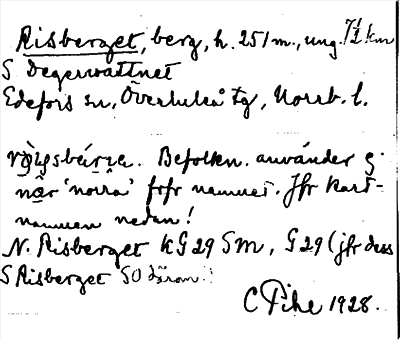 Risberget, berg, h. 251 m., ung. 7½ km
S Degervattnet
Edefors sn, Överluleå tg, Norrb. l.
Befolkn. använder ej
när 'norra' förfr namnet. Jfr kart-
namnen nedan!
N. Risberget KG 29 Sm, G 29 (jfr dess
S Risberget SO därom.
C Pihe 1928.